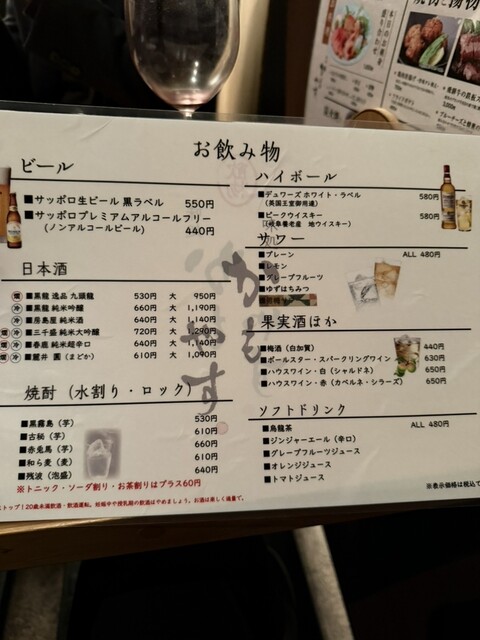 お飲み物
ビール
■サッポロ生ビール 黒ラベル 550円
■サッポロプレミアムアルコールフリー
(ノンアルコールビール) 440円
日本酒
燗 冷 ■黒龍 逸品 九頭龍 530円 大 950円
冷 ■黒龍 純米吟醸 660円 大 1,190円
冷 純米酒 640円 大 1,140円
燗 冷 ■三千盛 純米大吟醸 720円 大 1,290円
燗 冷 ■春鹿 純米超辛口 640円 大 1,140円
燗 冷 ■麓井 圓 (まどか) 610円 大 1,090円
焼酎 (水割り・ロック)
■黒霧島 (芋) 530円
■古秘 (芋) 610円
■赤兎馬 (芋) 660円
■和ら麦 (麦) 610円
■残波 (泡盛) 640円
※トニック・ソーダ割り・お茶割りはプラス60円
ストップ!20歳未満飲酒・飲酒運転。妊娠中や授乳期の飲酒はやめましょう。お酒は楽しく適量で。
ハイボール
■デュワーズ ホワイト・ラベル 580円
(英国王室御用達)
■ピークウイスキー 580円
(岐阜養老産 地ウイスキー)
サワー
■プレーン ALL 480円
■レモン
■グレープフルーツ
■ゆずはちみつ
果実酒ほか
■梅酒 (白加賀) 440円
■ポールスター・スパークリングワイン 630円
■ハウスワイン・白 (シャルドネ) 650円
■ハウスワイン・赤 (カベルネ・シラーズ) 650円
ソフトドリンク
■烏龍茶 ALL 480円
■ジンジャーエール (辛口)
■グレープフルーツジュース
■オレンジジュース
■トマトジュース
※表示価格は税込で